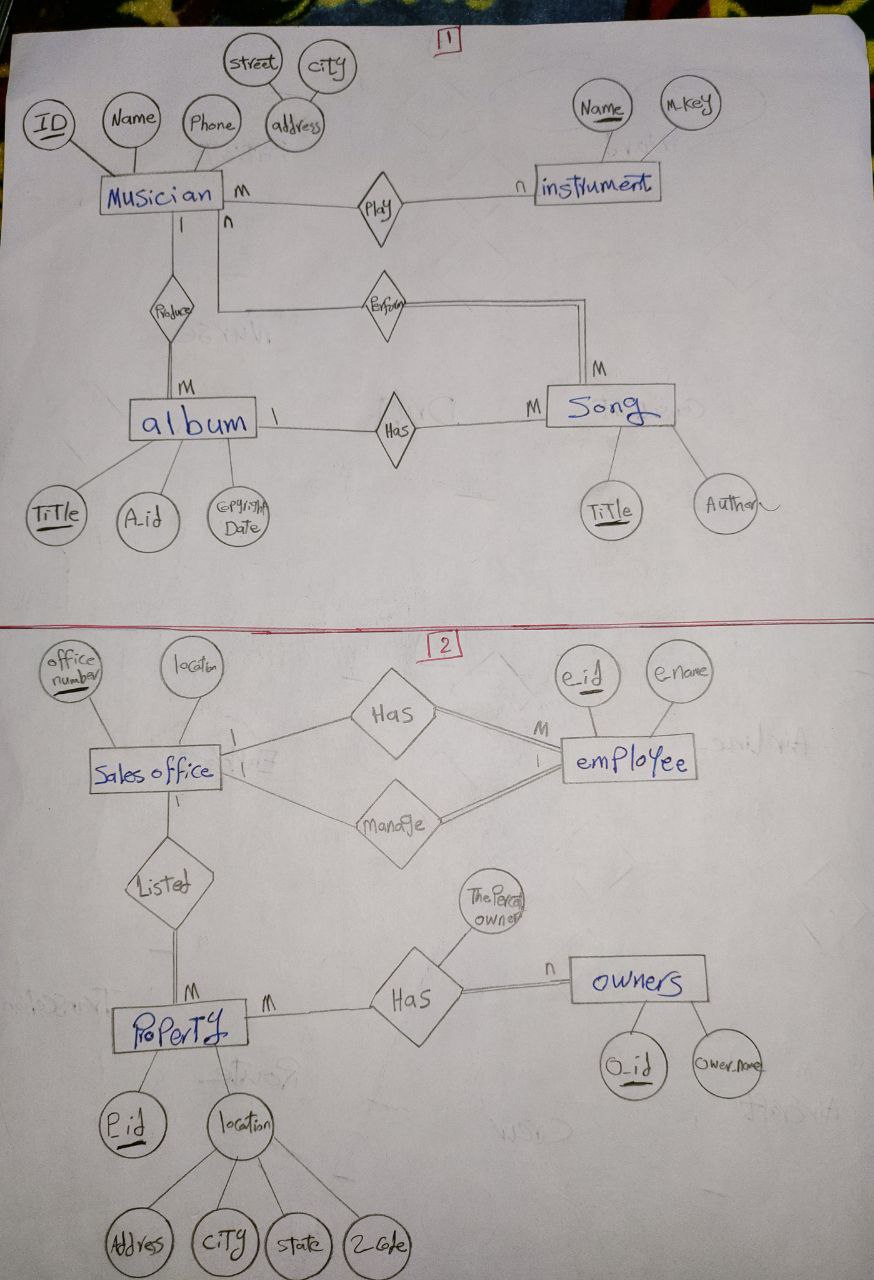 1
street
city
ID
Name
Phone
address
Name
M_key
Musician
M
Play
n
instrument
1
n
Produce
Perform
M
M
album
1
Has
M
Song
Title
A_id
Copyright
Date
Title
Author
2
office
number
location
e_id
e_name
Has
1
M
Sales office
employee
1
1
Manage
1
Listed
The Percent
owner
M
M
Has
n
owners
Property
O_id
Ower_name
P_id
location
Address
city
state
Z code